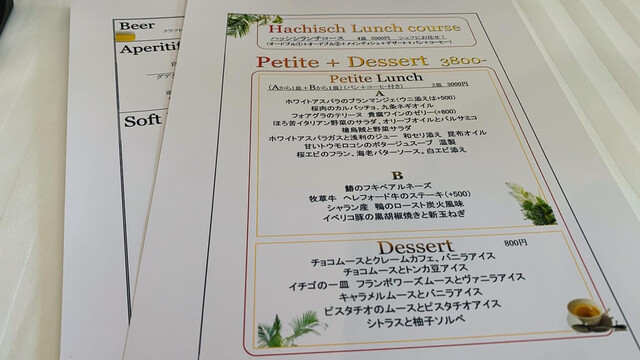 Beer
Aperitif
Soft
Hachisch Lunch course
ハッシシランチコース 4皿 5000円 シェフにお任せ！
(オードブル①+オードブル②+メインディシュ+デザート+パン+コーヒー)
Petite + Dessert 3800-
Petite Lunch
(Aから1皿+Bから1皿)(パン+コーヒー付き) 2皿 3000円
A
ホワイトアスパラのブランマンジェ(ウニ添えは+500)
桜肉のカルパッチョ、九条ネギオイル
フォアグラのテリーヌ 貴腐ワインのゼリー(+800)
ほろ苦イタリアン野菜のサラダ、オリーブオイルとバルサミコ
槍烏賊と野菜サラダ
ホワイトアスパラガスと浅利のジュー 和セリ添え 昆布オイル
甘いトウモロコシのポタージュスープ 温製
桜エビのフラン、海老バターソース。白エビ添え
B
鰆のフキベアルネーズ
牧草牛 ヘレフォード牛のステーキ(+500)
シャラン産 鴨のロースト炭火風味
イベリコ豚の黒胡椒焼きと新玉ねぎ
Dessert 800円
チョコムースとクレームカフェ、バニラアイス
チョコムースとトンカ豆アイス
イチゴの一皿 フランボワーズムースとヴァニラアイス
キャラメルムースとバニラアイス
ピスタチオのムースとピスタチオアイス
シトラスと柚子ソルベ